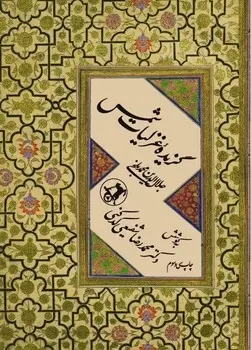 گزیدهٔ غزلیات شمس
جلال‌الدین محمد مولوی
بکوشش
دکتر محمدرضا شفیعی کدکنی
چاپ دوم